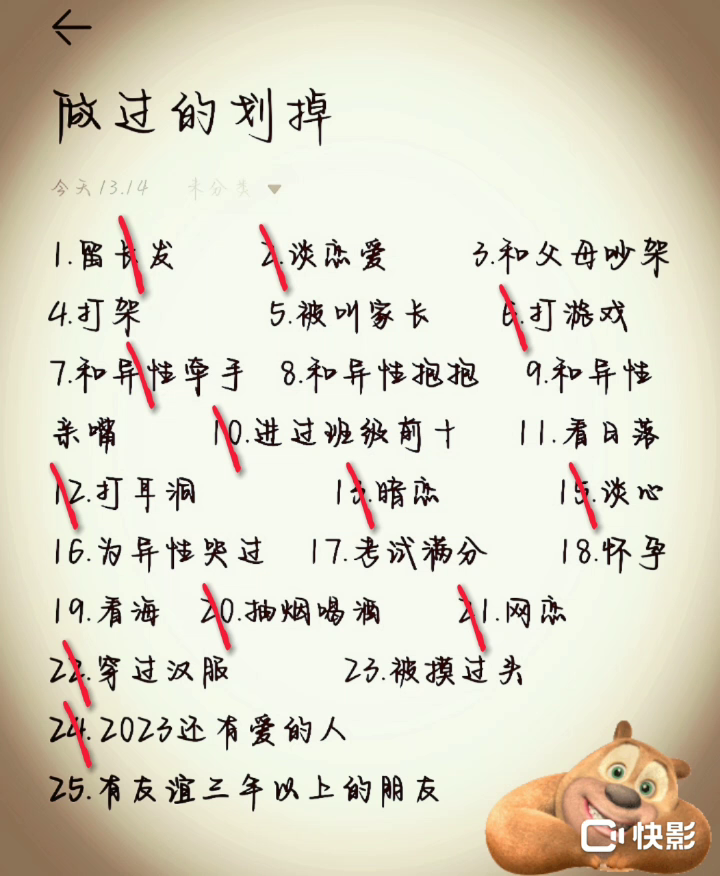 做过的划掉
今天13.14 未分类
1.留长发 2.谈恋爱 3.和父母吵架
4.打架 5.被叫家长 6.打游戏
7.和异性牵手 8.和异性抱抱 9.和异性
亲嘴 10.进过班级前十 11.看日落
12.打耳洞 13.暗恋 15.谈心
16.为异性哭过 17.考试满分 18.怀孕
19.看海 20.抽烟喝酒 21.网恋
22.穿过汉服 23.被摸过头
24.2023还有爱的人
25.有友谊三年以上的朋友
快影